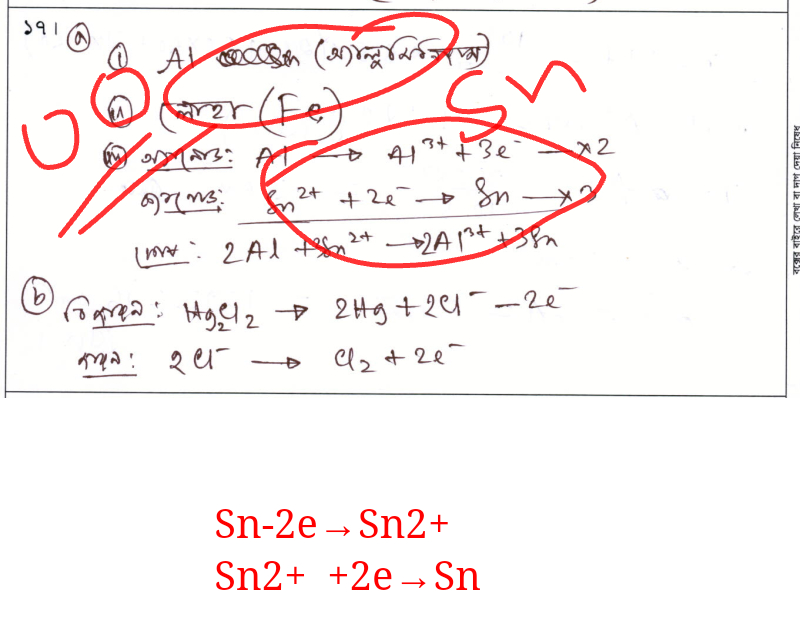 ১৭। ⓐ
ⓘ Al (অ্যালুমিনিয়াম)
ⓘⓘ লোহা (Fe)
Sn
0
ⓘⓘⓘ অ্যানোড: Al → Al³⁺ + 3e⁻ —×2
ক্যাথোড: Sn²⁺ + 2e⁻ → Sn —×3
কোষ: 2Al + 3Sn²⁺ → 2Al³⁺ + 3Sn
ⓑ বিজারণ: Hg₂Cl₂ → 2Hg + 2Cl⁻ – 2e⁻
জারণ: 2Cl⁻ → Cl₂ + 2e⁻
বক্সের বাইরে লেখা বা দাগ দেয়া নিষেধ
Sn-2e→Sn2+
Sn2+ +2e→Sn